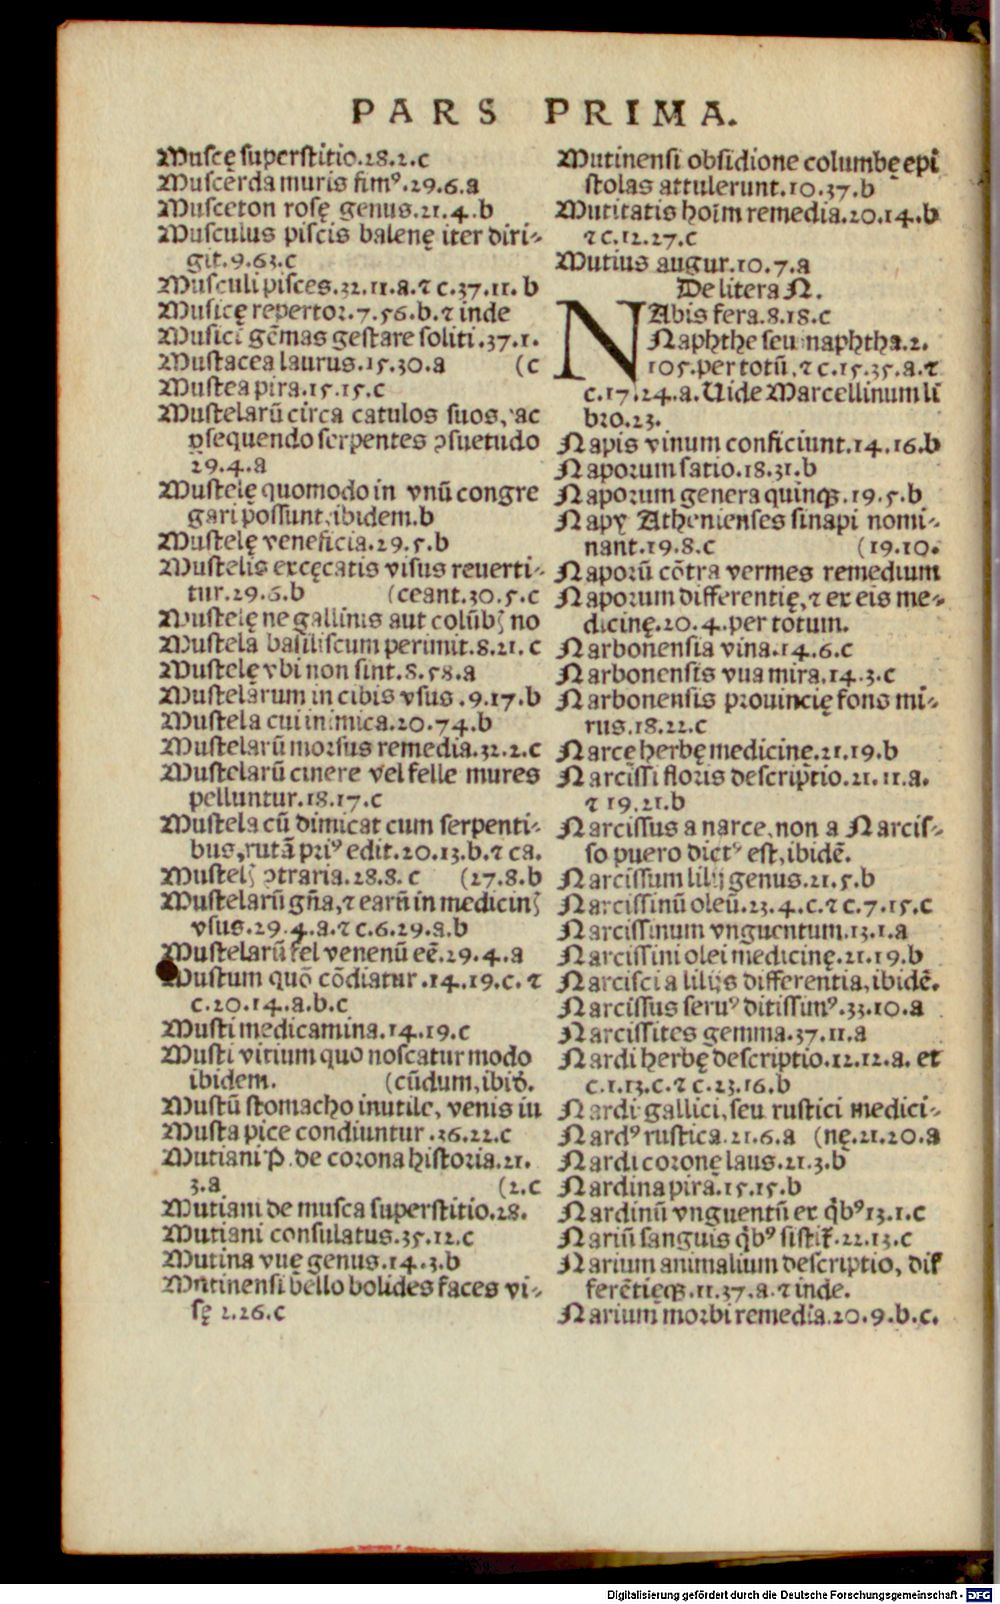 PARS PRIMA.
Muscę superstitio.28.2.c
Muscerda muris fimꝰ.29.6.a
Musceton rosę genus.21.4.b
Musculus piscis balenę iter diri-
git.9.63.c
Musculi pisces.32.11.a.⁊ c.37.11.b
Musicę repertor.7.56.b.⁊ inde
Musici gēmas gestare soliti.37.1.
Mustacea laurus.15.30.a (c
Mustea pira.15.15.c
Mustelarū circa catulos suos, ac
ꝓsequendo serpentes ↄsuetudo
29.4.a
Mustelę quomodo in vnū congre
gari possunt,ibidem.b
Mustelę veneficia.29.5.b
Mustelis excęcatis visus reuerti-
tur.29.6.b (ceant.30.5.c
Mustelę ne gallinis aut colūbꝭ no
Mustela basiliscum perimit.8.21.c
Mustelę vbi non sint.8.58.a
Mustelarum in cibis vsus.9.17.b
Mustela cui inimica.20.74.b
Mustelarū morsus remedia.32.2.c
Mustelarū cinere vel felle mures
pelluntur.18.17.c
Mustela cū dimicat cum serpenti-
bus,rutā priꝰ edit.20.13.b.⁊ ca.
Mustelꝭ ↄtraria.28.8.c (27.8.b
Mustelarū gn̄a,⁊ earū in medicinꝭ
vsus.29.4.a.⁊ c.6.29.a.b
Mustelarū fel venenū eē.29.4.a
Mustum quō cōdiatur.14.19.c.⁊
c.20.14.a.b.c
Musti medicamina.14.19.c
Musti vitium quo noscatur modo
ibidem. (cūdum,ibid̄.
Mustū stomacho inutile, venis iu
Musta pice condiuntur.36.22.c
Mutiani P. de corona historia.21.
3.a (2.c
Mutiani de musca superstitio.28.
Mutiani consulatus.35.12.c
Mutina vuę genus.14.3.b
Mutinensi bello bolides faces vi-
sę 2.26.c
Mutinensi obsidione columbę epi
stolas attulerunt.10.37.b
Mutitatis hoīm remedia.20.14.b
⁊ c.12.27.c
Mutius augur.10.7.a
De litera N.
NAbis fera.8.18.c
Naphthe seu naphtha.2.
105.per totū,⁊ c.15.35.a.⁊
c.17.24.a.Uide Marcellinum li
bro.23.
Napis vinum conficiunt.14.16.b
Naporum satio.18.31.b
Naporum genera quinqꝫ.19.5.b
Napy Athenienses sinapi nomi-
nant.19.8.c (19.10.
Naporū cōtra vermes remedium
Naporum differentię,⁊ ex eis me-
dicinę.20.4.per totum.
Narbonensia vina.14.6.c
Narbonensis vua mira.14.3.c
Narbonensis prouincię fons mi-
rus.18.22.c
Narcę herbę medicinę.21.19.b
Narcissi floris descriptio.21.11.a.
⁊ 19.21.b
Narcissus a narce,non a Narcis-
so puero dictꝰ est,ibidē.
Narcissum lilij genus.21.5.b
Narcissinū oleū.23.4.c.⁊ c.7.15.c
Narcissinum vnguentum.13.1.a
Narcissini olei medicinę.21.19.b
Narcisci a lilijs differentia,ibidē.
Narcissus seruꝰ ditissimꝰ.33.10.a
Narcissites gemma.37.11.a
Nardi herbę descriptio.12.12.a. et
c.1.13.c.⁊ c.23.16.b
Nardi gallici,seu rustici medici-
Nardꝰ rustica.21.6.a (nę.21.20.a
Nardi coronę laus.21.3.b
Nardina pira.15.15.b
Nardinū vnguentū ex qͥbꝰ13.1.c
Nariū sanguis qͥbꝰ sistit̄.22.13.c
Narium animalium descriptio, dif
ferētięqꝫ.11.37.a.⁊ inde.
Narium morbi remedia.20.9.b.c.
Digitalisierung gefördert durch die Deutsche Forschungsgemeinschaft - DFG